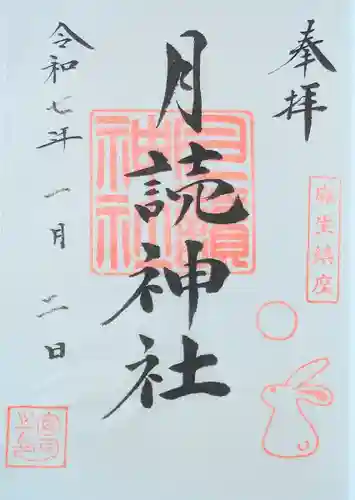 奉拝
麻生鎮座
月読神社
令和七年一月二日